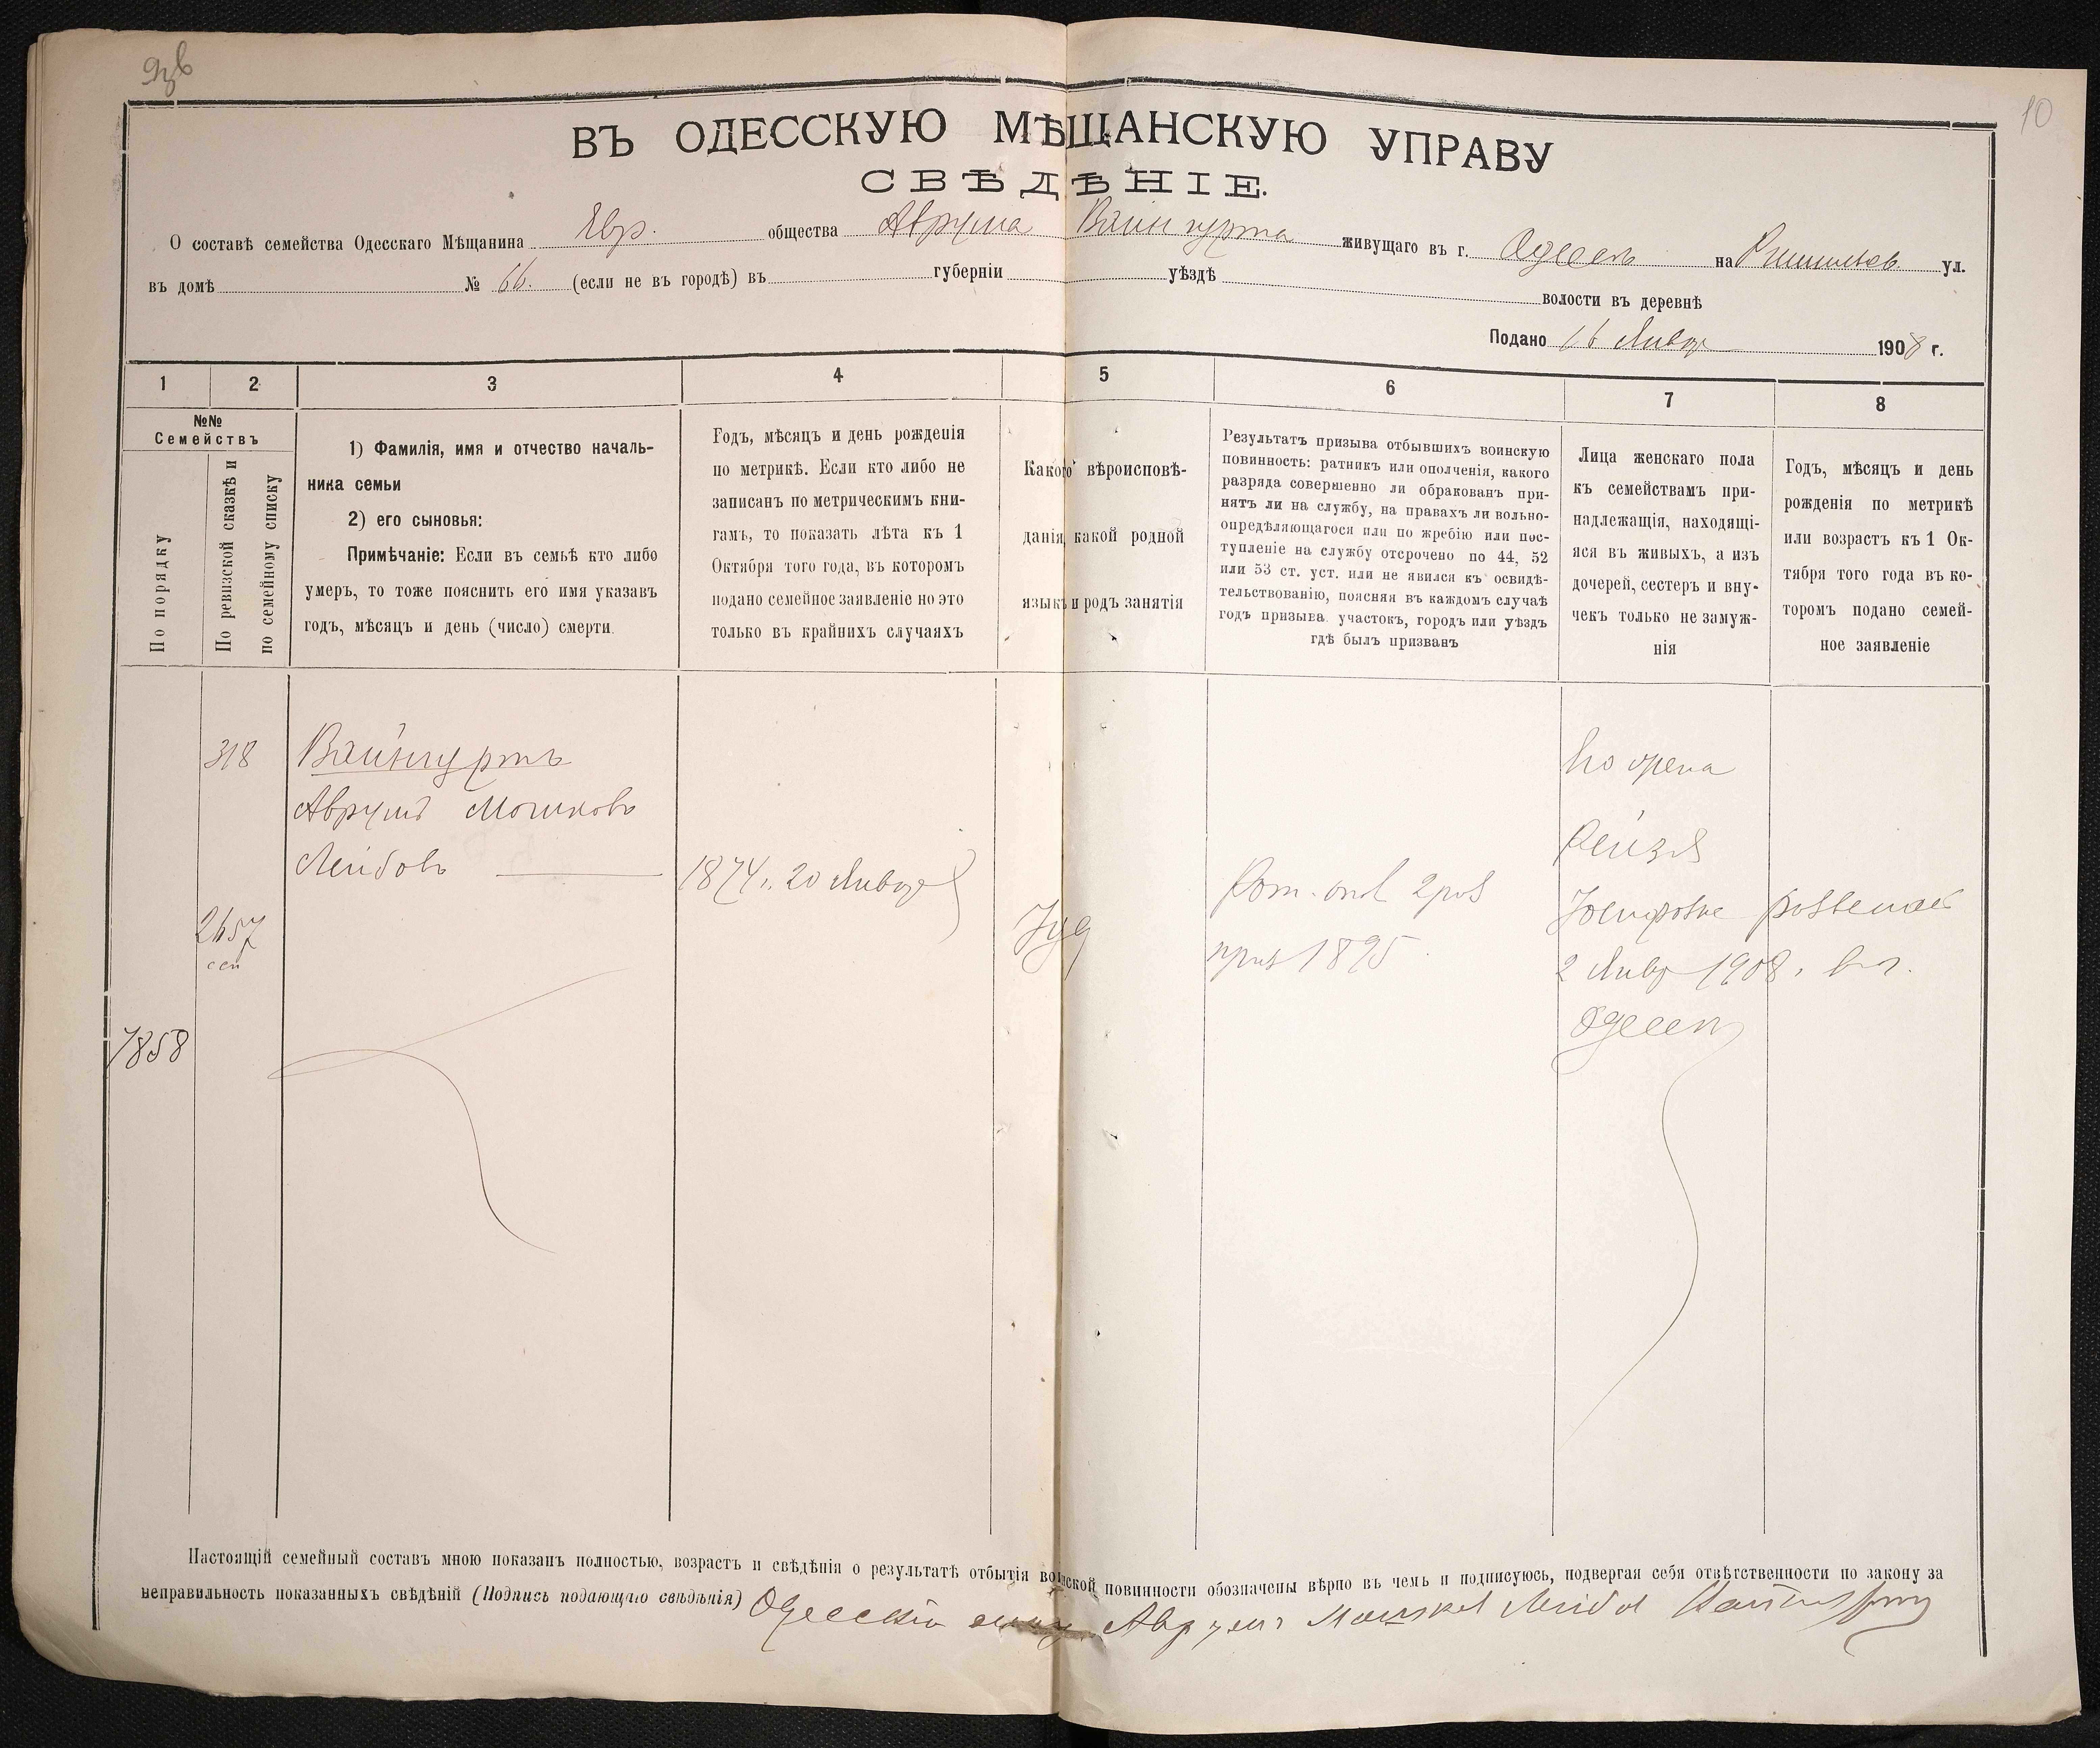 10
ВЪ ОДЕССКУЮ МѢЩАНСКУЮ УПРАВУ
СВѢДѢНІЕ.
О составѣ семейства Одесскаго Мѣщанина Евр. общества Аврума Вайнгурта живущаго въ г. Одессѣ на Ришильев. ул.
въ домѣ № 66. (если не въ городѣ) въ губерніи уѣздѣ волости въ деревнѣ
Подано 16 Январ 1908 г.
1 2 3 4 5 6 7 8
№№
Семействъ
По порядку
По ревизской сказкѣ и
по семейному списку
1) Фамилія, имя и отчество началь-
ника семьи
2) его сыновья:
Примѣчаніе: Если въ семьѣ кто либо
умеръ, то тоже пояснить его имя указавъ
годъ, мѣсяцъ и день (число) смерти.
Годъ, мѣсяцъ и день рожденія
по метрикѣ. Если кто либо не
записанъ по метрическимъ кни-
гамъ, то показать лѣта къ 1
Октября того года, въ которомъ
подано семейное заявленіе но это
только въ крайнихъ случаяхъ
Какого вѣроисповѣ-
данія, какой родной
языкъ и родъ занятія
Результатъ призыва отбывшихъ воинскую
повинность: ратникъ или ополченія, какого
разряда совершенно ли обракованъ при-
нятъ ли на службу, на правахъ ли вольно-
опредѣляющагося или по жребію или пос-
тупленіе на службу отсрочено по 44, 52
или 53 ст. уст. или не явился къ освидѣ-
тельствованію, поясняя въ каждомъ случаѣ
годъ призыва участокъ, городъ или уѣздъ
гдѣ былъ призванъ
Лица женскаго пола
къ семействамъ при-
надлежащія, находящі-
яся въ живыхъ, а изъ
дочерей, сестеръ и вну-
чекъ только не замуж-
нія
Годъ, мѣсяцъ и день
рожденія по метрикѣ
или возрастъ къ 1 Ок-
тября того года въ ко-
торомъ подано семей-
ное заявленіе
318
Вайнгуртъ
Аврумъ Мошковъ
Лейбовъ
1874 г. 20 Января
2657
1858
Іуд
Рат. опол 2 раз
приз 1895
Рейзя
2 Январ 1908 г. въ г.
Одессѣ
Настоящій семейный составъ мною показанъ полностью, возрастъ и свѣдѣнія о результатѣ отбытія воинской повинности обозначены вѣрно въ чемъ и подписуюсь, подвергая себя отвѣтственности по закону за
неправильность показанныхъ свѣдѣній (Подпись подающаго свѣдѣнія) Одесскій Аврумъ Мошков Лейбов Вайнгурт